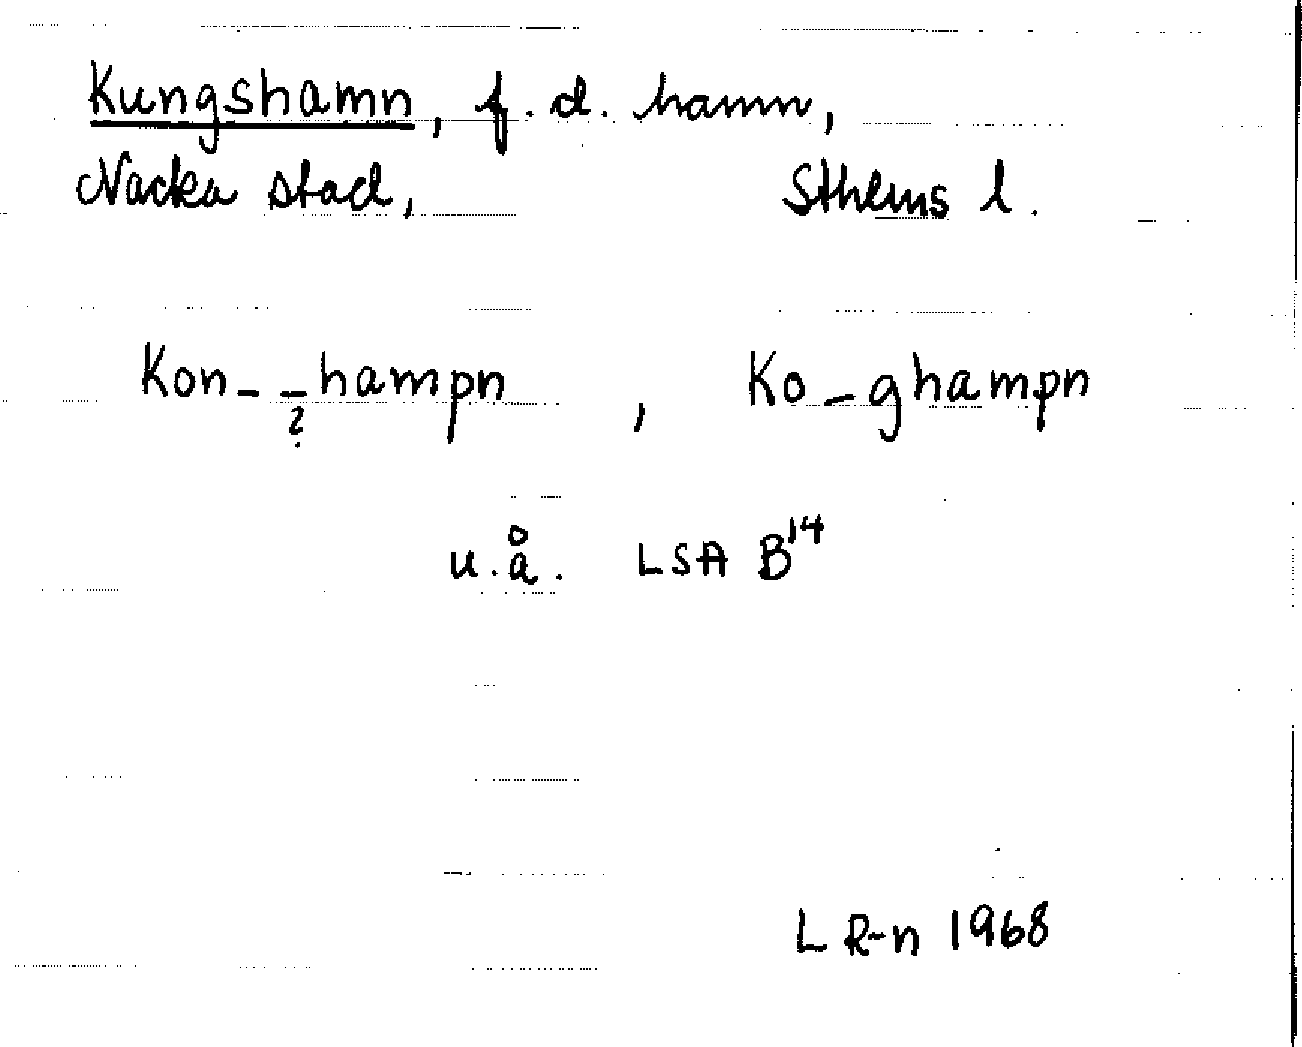 Kungshamn, f.d. hamn,
Nacka stad, Sthlms l.
Kon- -hampn, Ko-ghampn
?
u.å. LSA B14
L R-n 1968